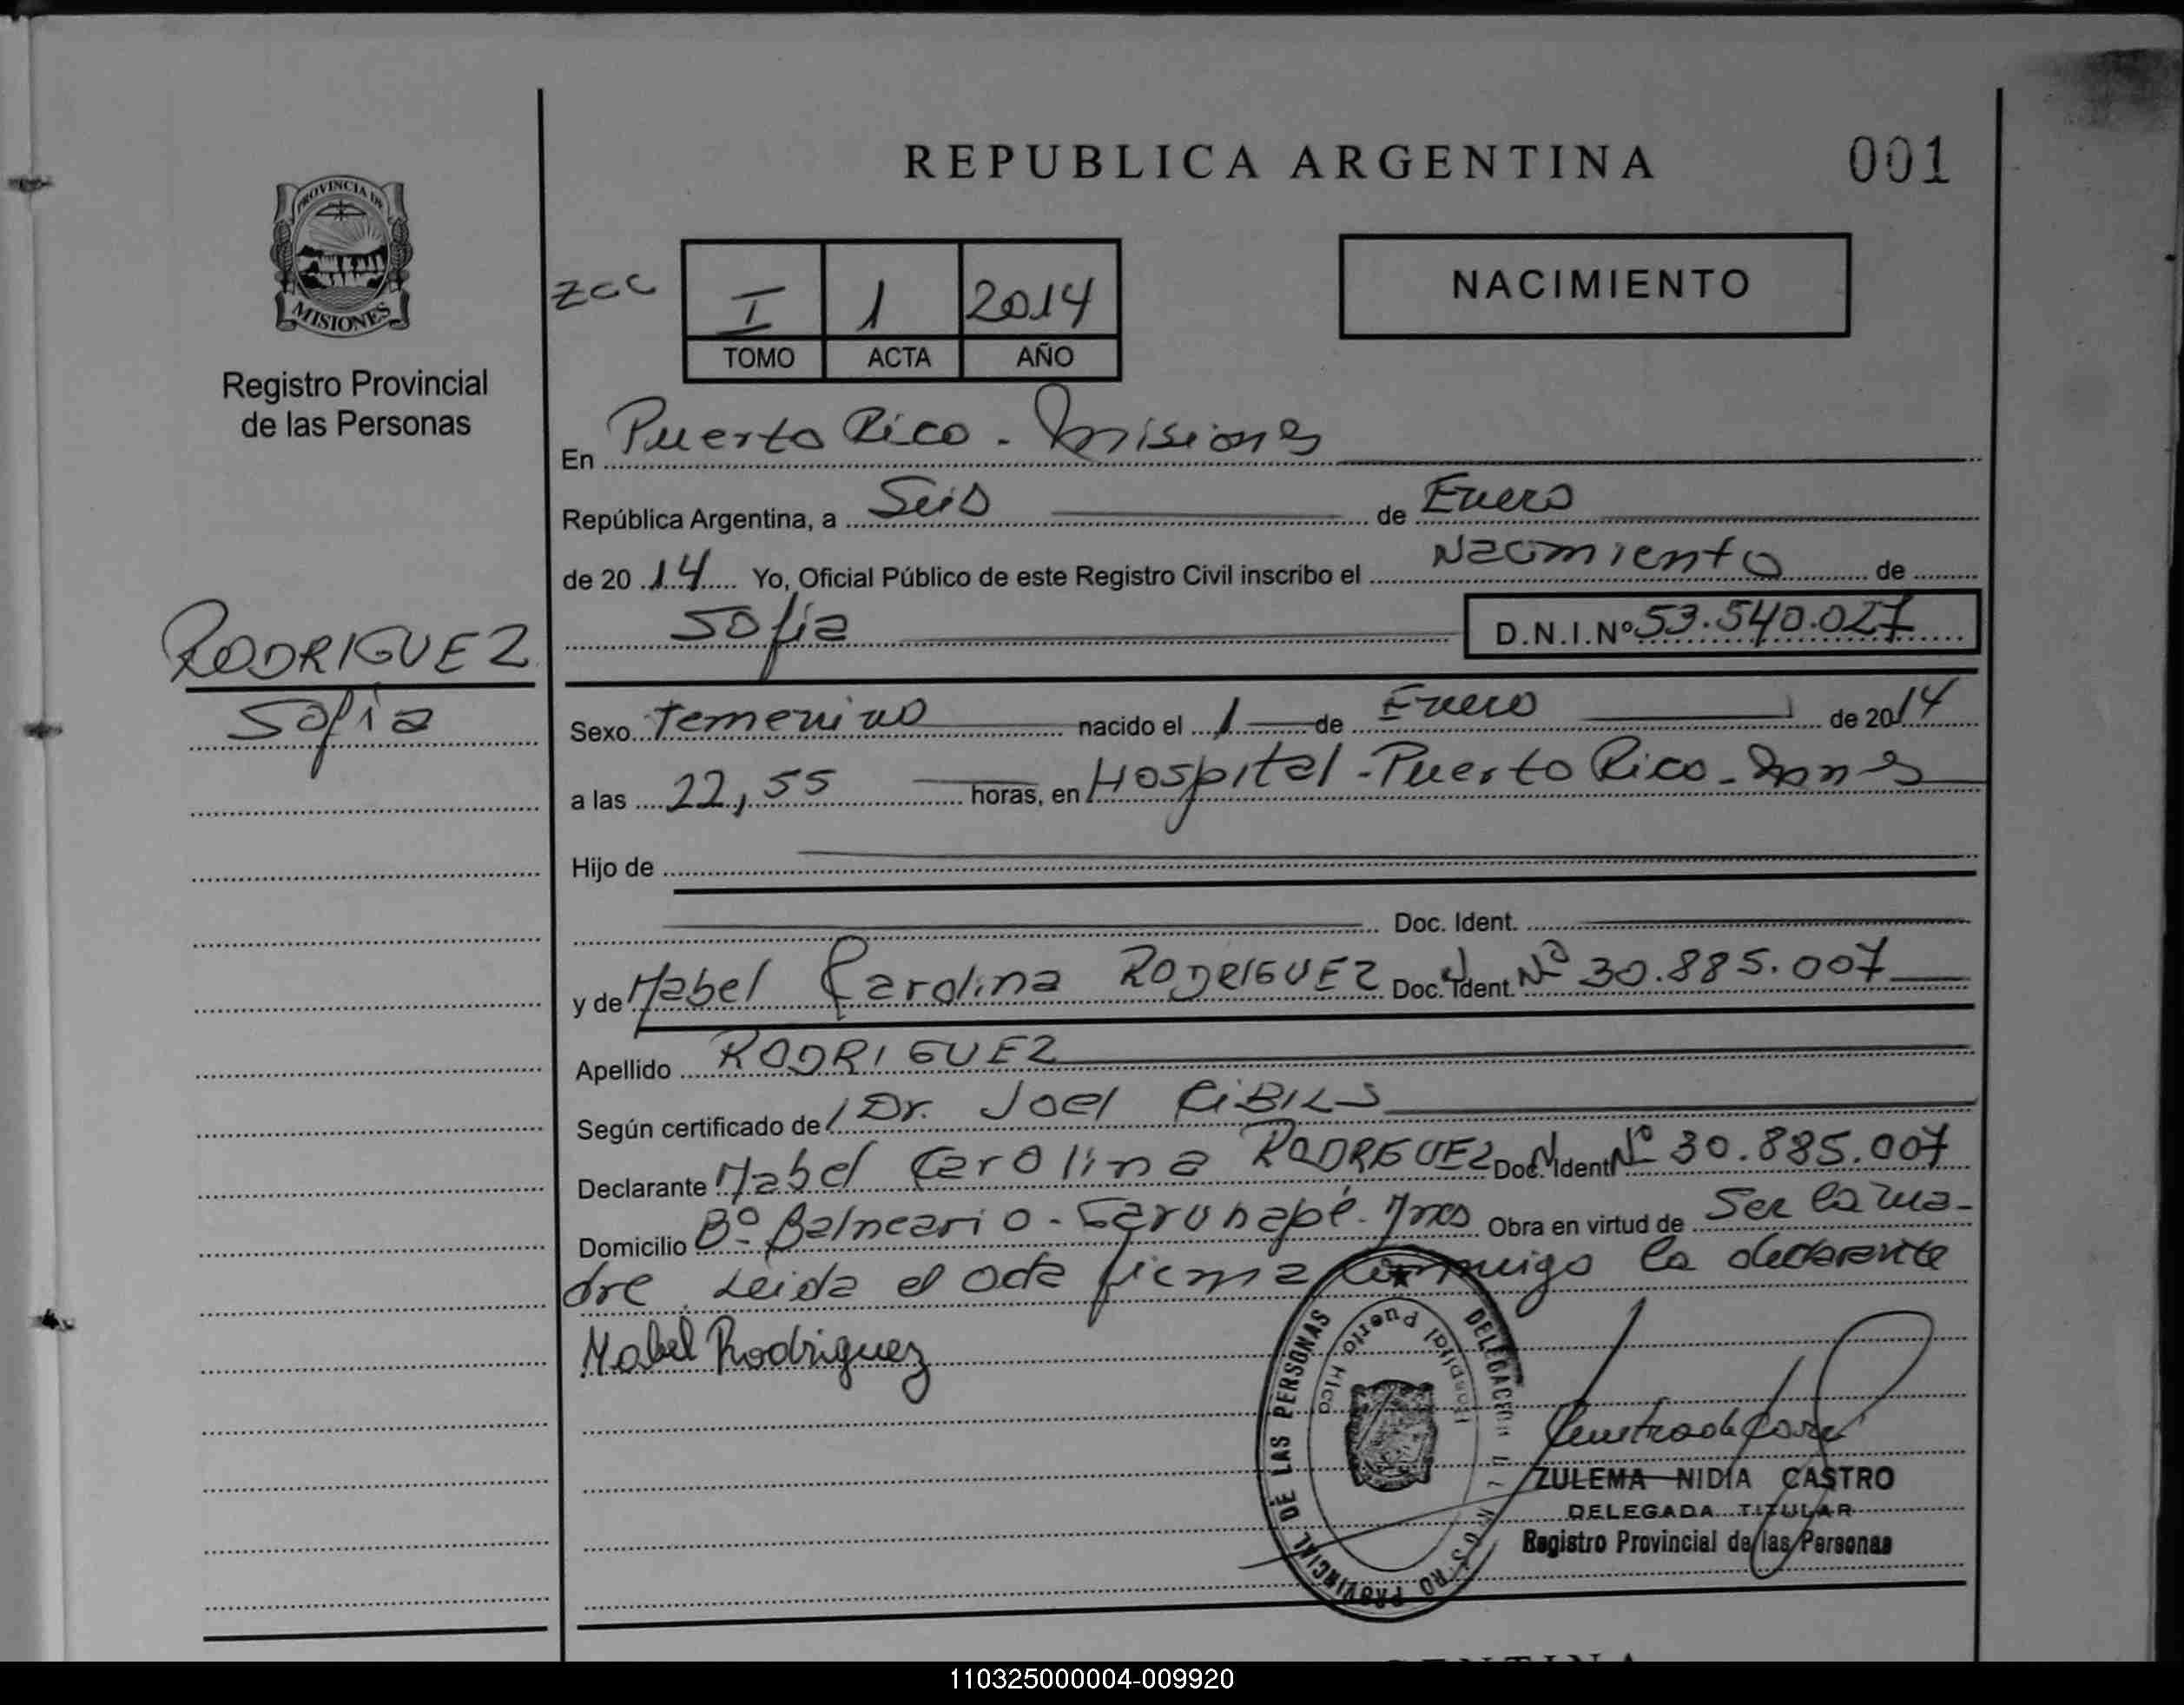 REPUBLICA ARGENTINA
001
PROVINCIA DE
MISIONES
Registro Provincial
de las Personas
zcc
I 1 2014
TOMO ACTA AÑO
NACIMIENTO
En Puerto Rico - Misiones
República Argentina, a Seis de Enero
de 2014 Yo, Oficial Público de este Registro Civil inscribo el Nacimiento de
Sofia D.N.I.Nº 53.540.027
RODRIGUEZ
Sofia
Sexo Femenino nacido el 1 de Enero de 2014
a las 22,55 horas, en Hospital - Puerto Rico - Mnes
Hijo de
Doc. Ident.
y de Mabel Carolina RODRIGUEZ Doc. Ident. Nº 30.885.007
Apellido RODRIGUEZ
Según certificado de Dr. Joel CIBILS
Declarante Mabel Carolina RODRIGUEZ Doc. Ident Nº 30.885.007
Domicilio Bº Balneario - Garuhapé - Mnes Obra en virtud de Ser la ma-
dre. Leida el acta firma conmigo la declarante
Mabel Rodriguez
DELEGACION
REGISTRO PROVINCIAL DE LAS PERSONAS
Hospital Puerto Rico
ZULEMA NIDIA CASTRO
DELEGADA TITULAR
Registro Provincial de las Personas
110325000004-009920